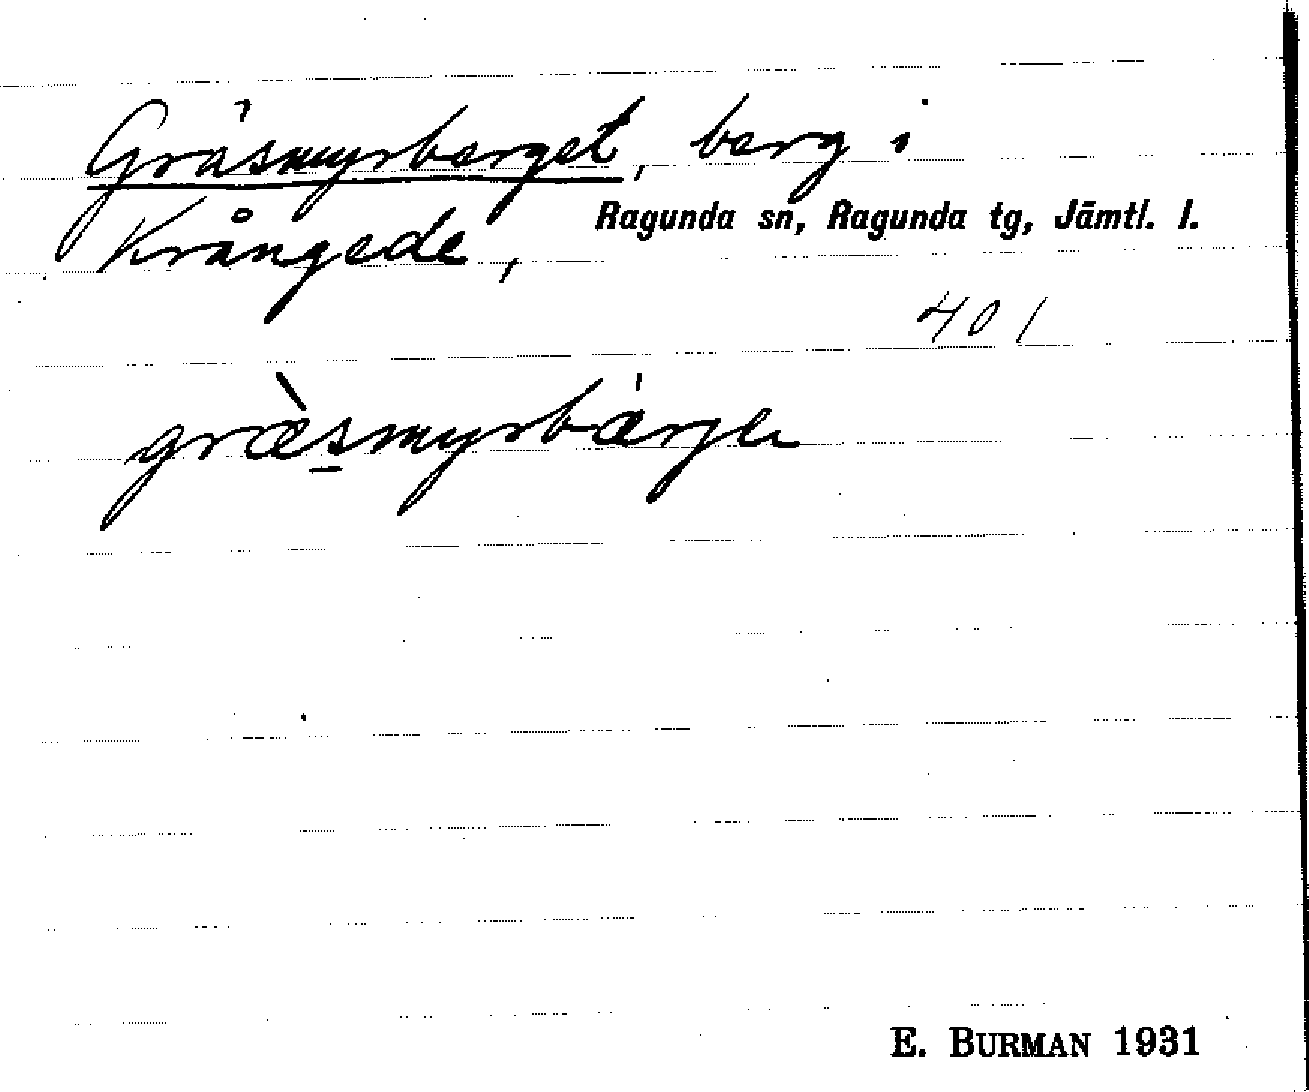 Gräsmyrberget, berg i
Krångede, Ragunda sn, Ragunda tg, Jämtl. l.
401
græ̀smyrbǽrjer
E. BURMAN 1931